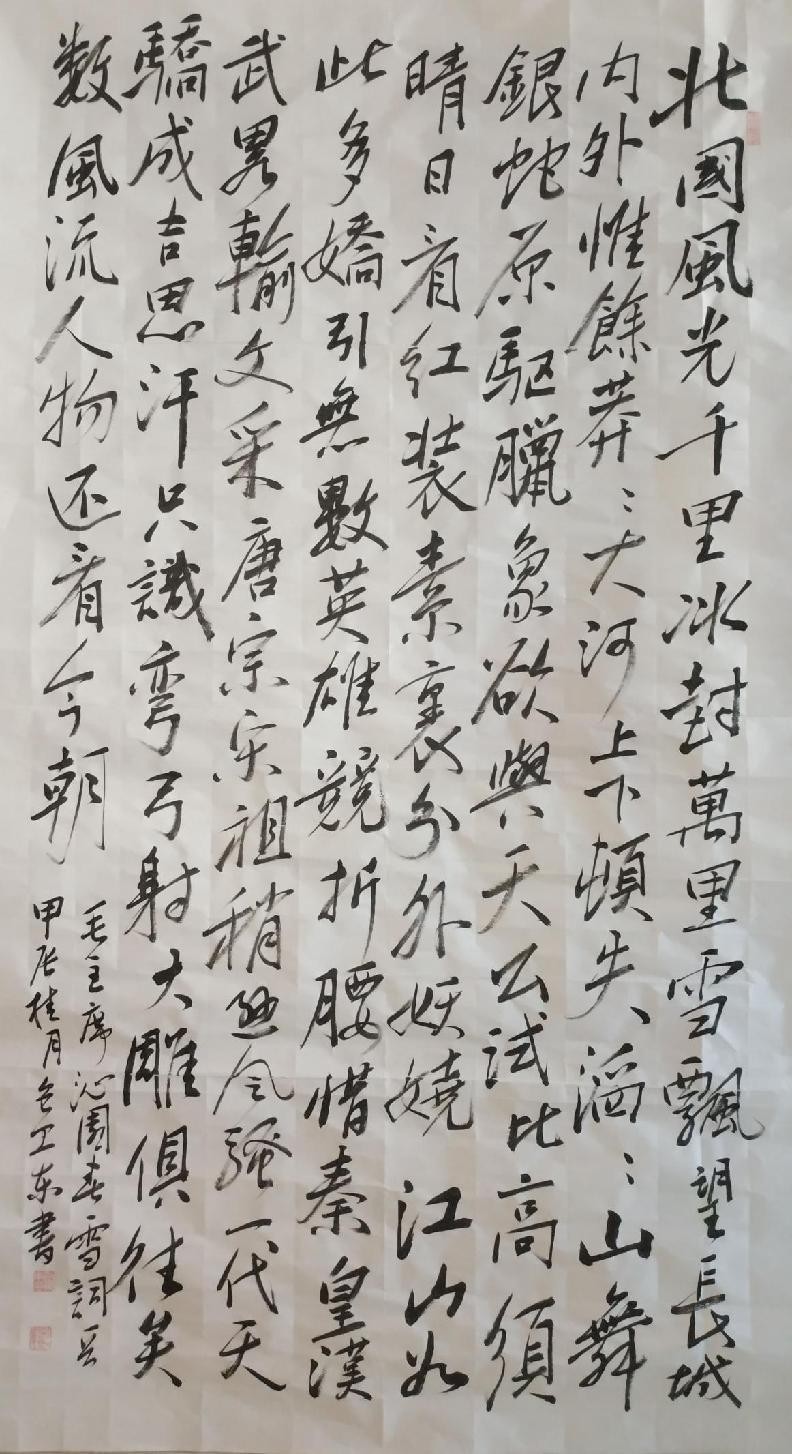 北國風光千里冰封萬里雪飄望長城
内外惟餘莽〻大河上下頓失滔〻山舞
銀蛇原驱臘象欲與天公試比高須
晴日看红装素裹分外妖娆江山如
此多嬌引無數英雄競折腰惜秦皇漢
武畧輸文采唐宗宋祖稍遜風騷一代天
驕成吉思汗只識弯弓射大雕俱往矣
数風流人物还看今朝
毛主席沁園春雪詞一首
甲辰桂月 卫东書